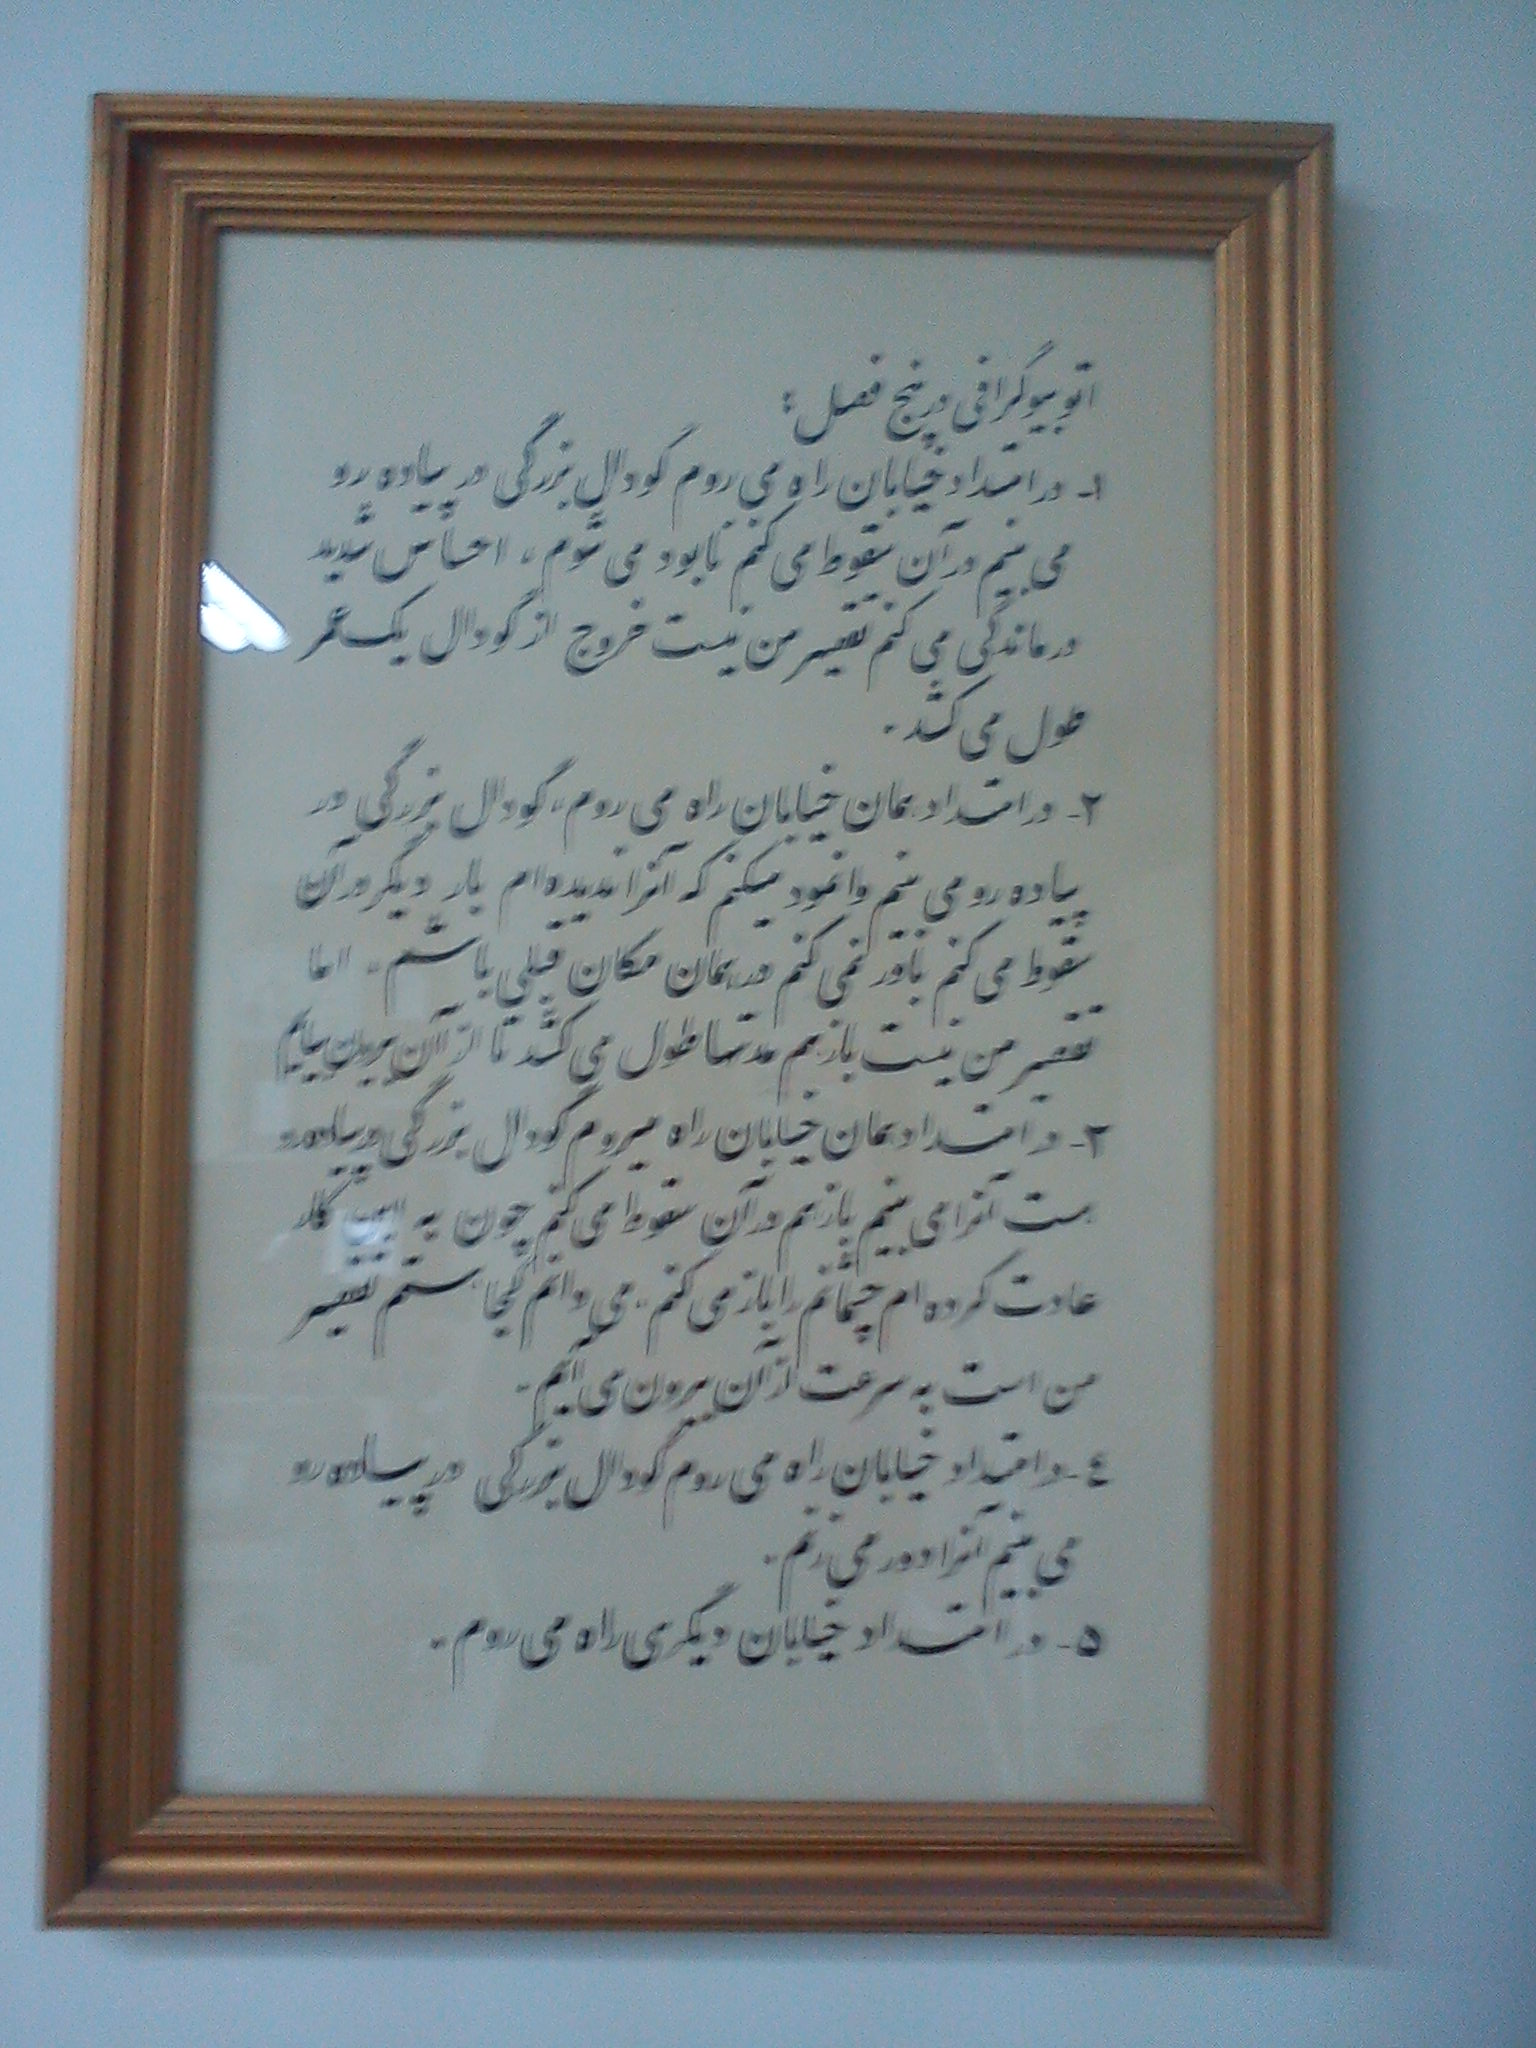 اتوبیوگرافی در پنج فصل:
۱- در امتداد خیابان راه می روم گودال بزرگی در پیاده رو
می بینم در آن سقوط می کنم نابود می شوم، احساس شدید
درماندگی می کنم تقصیر من نیست خروج از گودال یک عمر
طول می کشد.
۲- در امتداد همان خیابان راه می روم، گودال بزرگی در
پیاده رو می بینم وانمود میکنم که آنرا ندیده ام بار دیگر در آن
سقوط می کنم باور نمی کنم در همان مکان قبلی باشم. اما
تقصیر من نیست باز هم مدتها طول می کشد تا از آن بیرون بیایم
۳- در امتداد همان خیابان راه میروم گودال بزرگی در پیاده رو
هست آنرا می بینم باز هم در آن سقوط می کنم چون به این کار
عادت کرده ام چشمانم را باز می کنم. می دانم کجا هستم تقصیر
من است به سرعت از آن بیرون می آیم.
٤- در امتداد خیابان راه می روم گودال بزرگی در پیاده رو
می بینم آنرا دور می زنم.
۵- در امتداد خیابان دیگری راه می روم.